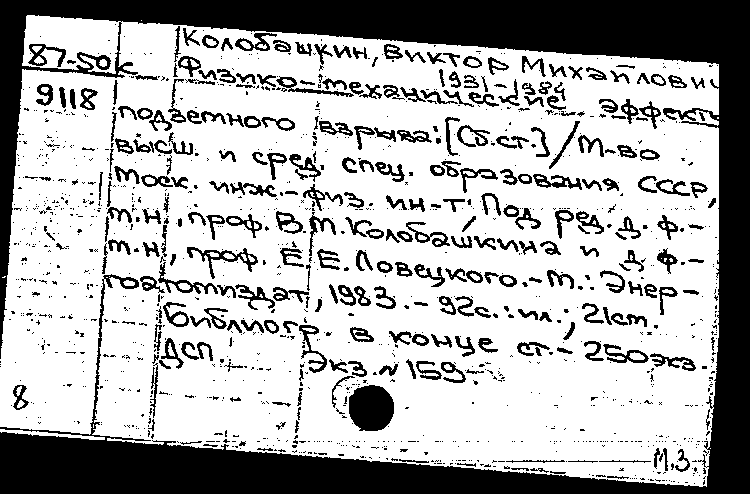 Колобашкин, Виктор Михайлович
87-50к
1931-1984
Физико-механические эффекты
9118
подземного взрыва: [Сб. ст.] / М-во
высш. и сред. спец. образования СССР,
Моск. инж.-физ. ин-т; Под ред. д. ф.-
м. н., проф. В. М. Колобашкина и д. ф.-
м. н., проф. Е. Е. Ловецкого. - М.: Энер-
гоатомиздат, 1983. - 92с.: ил.; 21 см.
Библиогр. в конце ст. - 250 экз.
ДСП. Экз. № 159.
8
М.З.